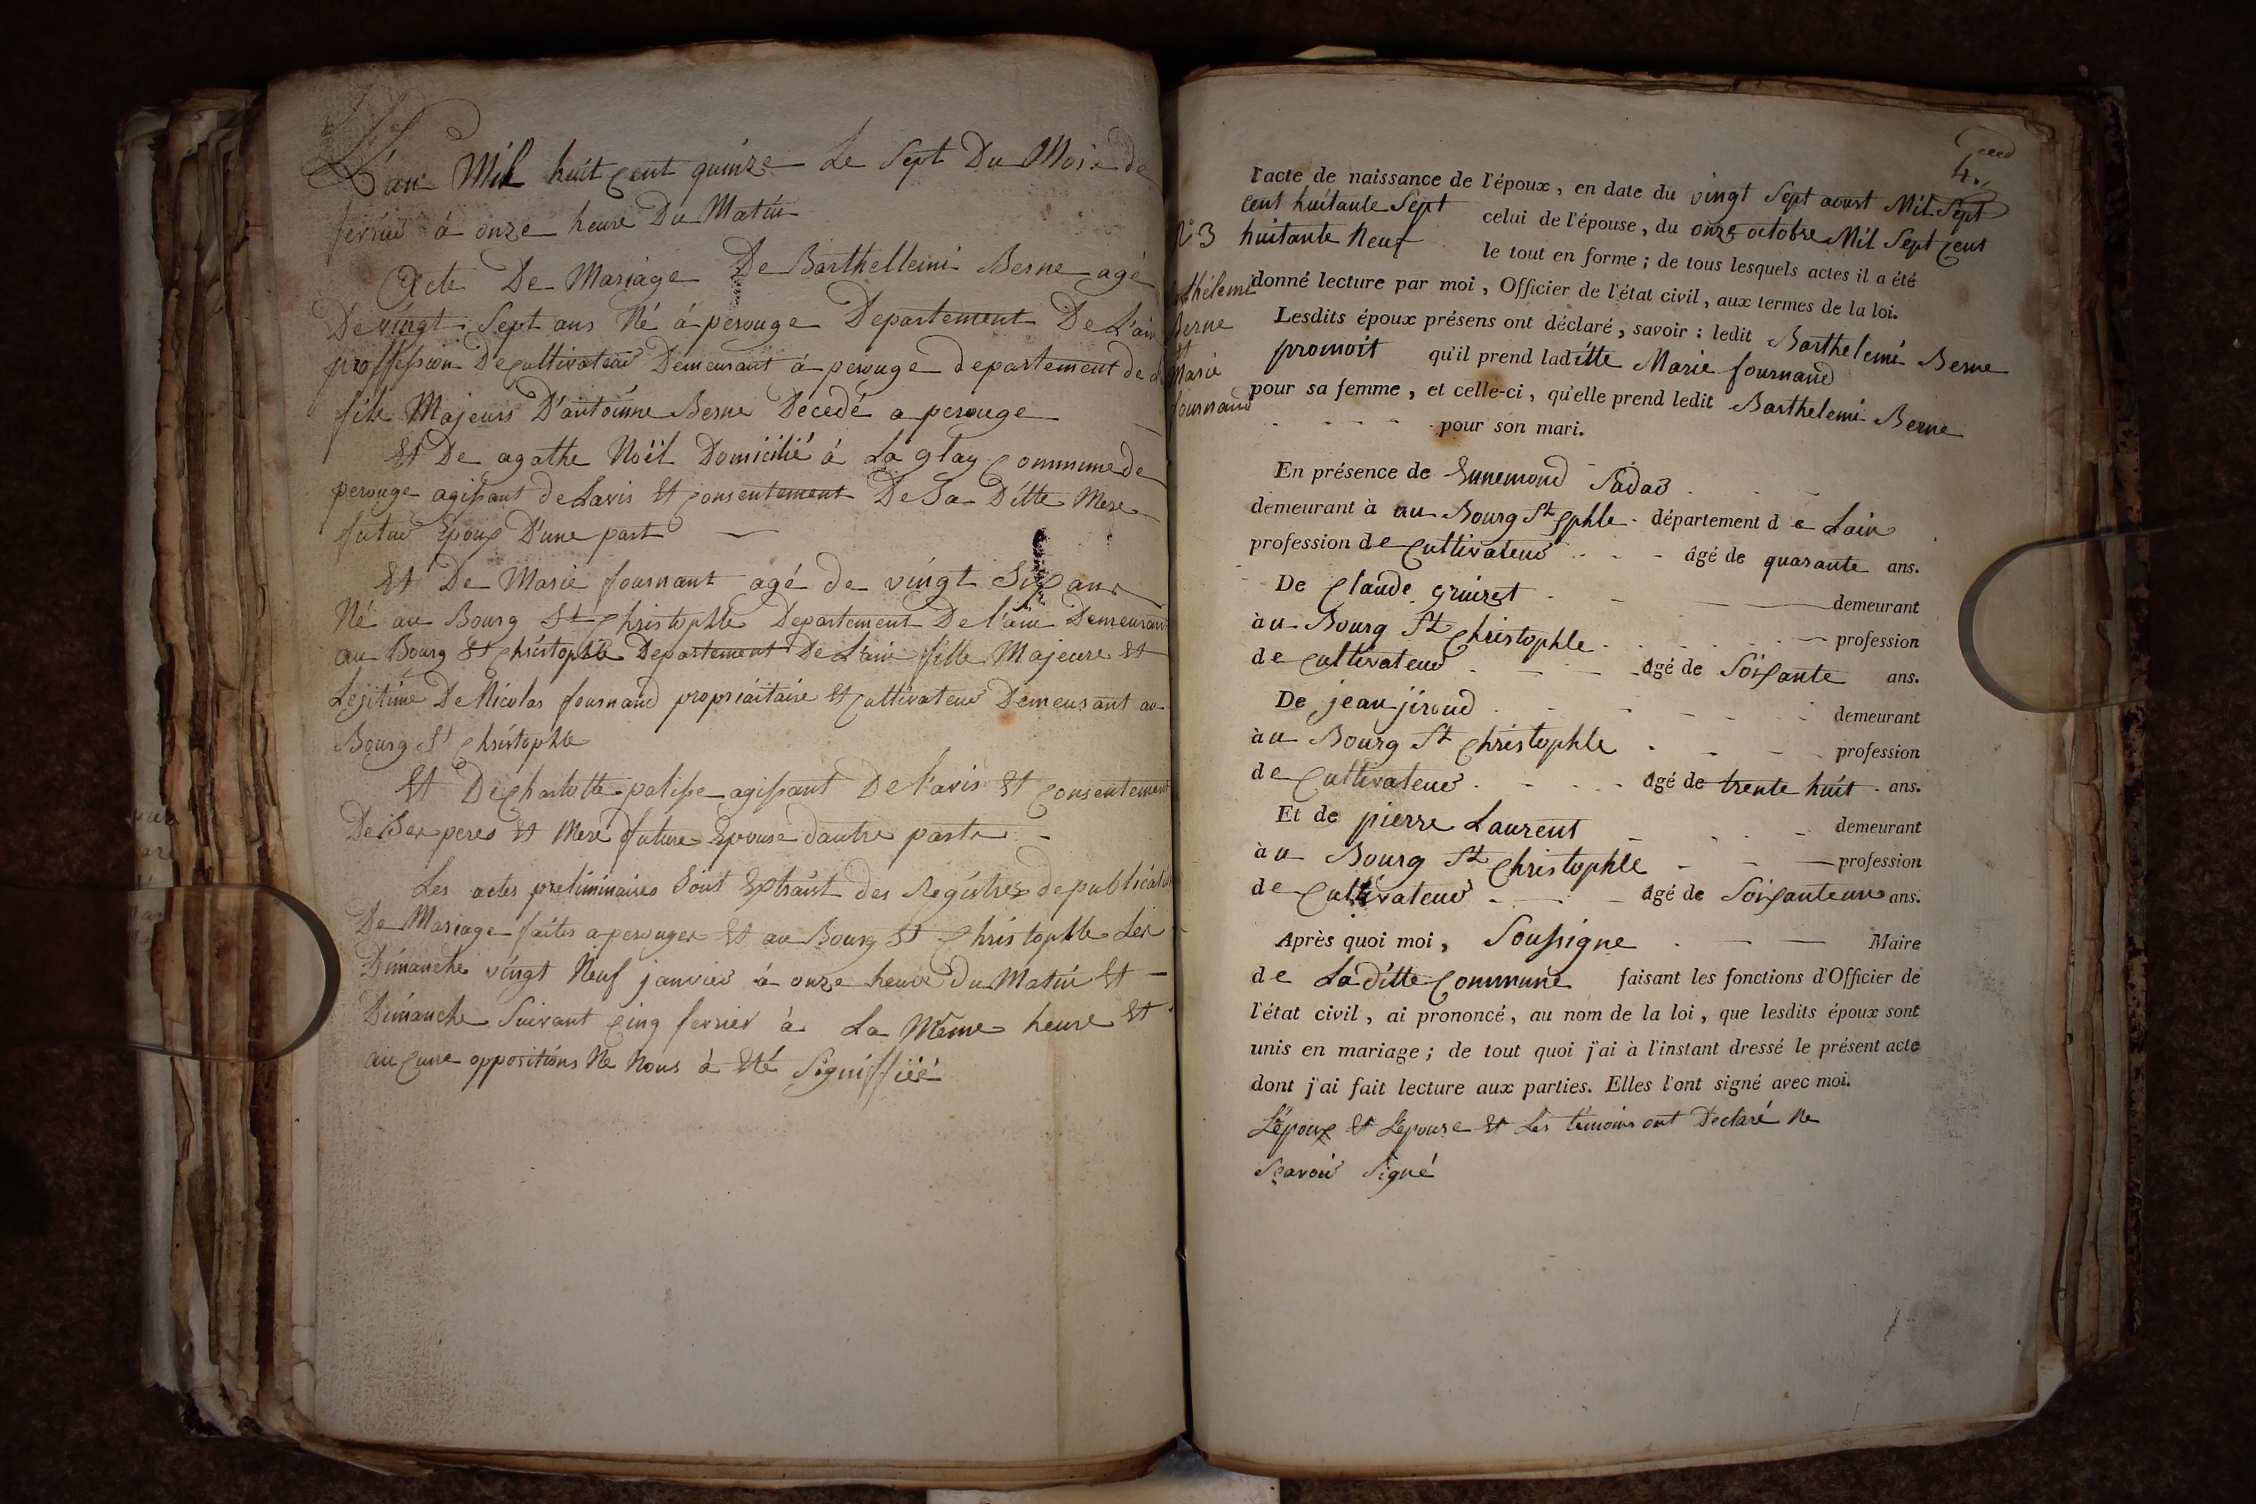 L'an Mil huit cent quinze Le Sept Du Mois de
fevrier à onze heure Du Matin
Acte De Mariage De Barthellemi Berne agé
De vingt Sept ans Né à perouge Departement De L'ain
proffession De Cultivateur Demeurant à perouge departement de
fils Majeurs D'antoinne Berne Decedé a perouge
Et De agathe Noël Domicilié à La glay Commune de
perouge agissant de Lavis Et Consentement De Sa Ditte Mere
futur Epoux D'une part
Et De Marie fournant agé de vingt Six ans
Né au Bourg St Christophle Departement De l'ain Demeurant
au Bourg St Christophle Departement De L'ain fille Majeure Et
Legitime De Nicolas fournand propriaitaire Et Cultivateur Demeurant au
Bourg St Christophle
Et De Charlotte palisse agissant De l'avis Et Consentement
De Ses peres Et Mere future Epouse dautre parts
Les actes preliminaires Sont Extraist des Registres de publication
De Mariage faites a perouges Et au Bourg St Christophle Les
Dimanche vingt Neuf janvier à onze heure du Matin Et
Dimanche Suivant Cinq fevrier à La Même heure Et
au Cune oppositions Ne Nous à Eté Signiffiéé
4.
l'acte de naissance de l'époux, en date du vingt Sept aoust Mil Sept
Cent huitante Sept celui de l'épouse, du onze octobre Mil Sept Cent
huitante Neuf le tout en forme ; de tous lesquels actes il a été
donné lecture par moi, Officier de l'état civil, aux termes de la loi.
N° 3
Berne
et
Marie
fournand
Lesdits époux présens ont déclaré, savoir : ledit Barthelemi Berne
promoit qu'il prend laditte Marie fournand
pour sa femme, et celle-ci, qu'elle prend ledit Barthelemi Berne
pour son mari.
En présence de Ennemond Sadar
demeurant à au Bourg St Cphle département de Lain
profession de Cultivateur âgé de quarante ans.
De Claude gruizet demeurant
à au Bourg St Christophle profession
de Cultivateur âgé de Soixante ans.
De jean jiroud demeurant
à au Bourg St Christophle profession
de Cultivateur âgé de trente huit ans.
Et de pierre Laurent demeurant
à au Bourg St Christophle profession
de Cultivateur âgé de Soixanteun ans.
Après quoi moi, Soussigne Maire
de La ditte Commune faisant les fonctions d'Officier de
l'état civil, ai prononcé, au nom de la loi, que lesdits époux sont
unis en mariage ; de tout quoi j'ai à l'instant dressé le présent acte
dont j'ai fait lecture aux parties. Elles l'ont signé avec moi.
L'époux Et L'epouse Et Les temoins ont Declaré Ne
Scavoir Signé